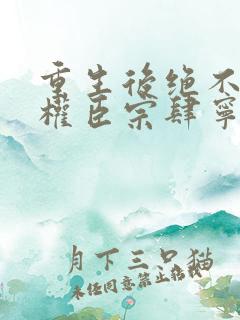 重生後绝不
權臣宗肆寧
月下三只猫
未经同意禁止转载